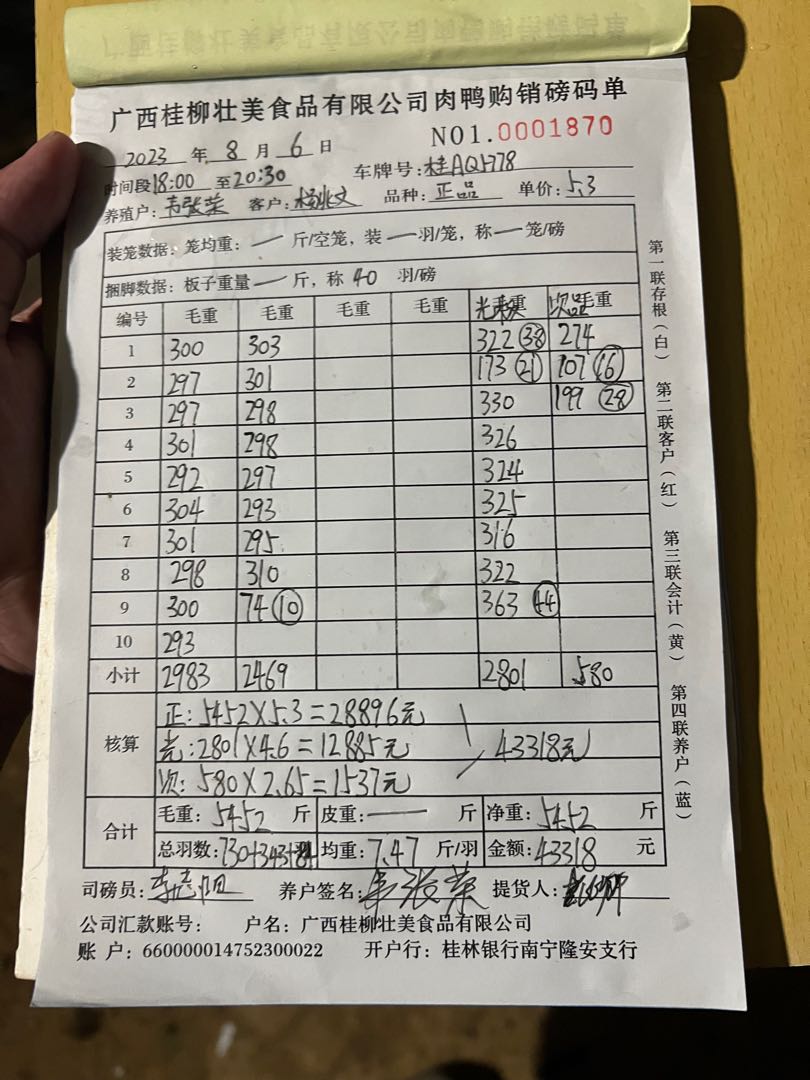 广西桂柳壮美食品有限公司肉鸭购销磅码单
2023 年 8 月 6 日 NO1.0001870
时间段18:00 至20:30 车牌号:桂AQ1778
养殖户:韦张荣 客户:杨兆文 品种:正品 单价:5.3
装笼数据:笼均重:一 斤/空笼,装一羽/笼,称一笼/磅
捆脚数据:板子重量一 斤,称 40 羽/磅
编号 毛重 毛重 毛重 毛重 毛重 次品毛重
1 300 303 322 38 274
2 297 301 173 21 107 16
3 297 298 330 199 28
4 301 298 326
5 292 297 324
6 304 293 325
7 301 295 316
8 298 310 322
9 300 74 10 363 44
10 293
小计 2983 2469 2801 580
核算
正:5452×5.3=28896元
光:2801×4.6=12885元 43318元
次:580×2.65=1537元
合计
毛重:5452 斤 皮重:一 斤 净重:5452 斤
总羽数:730+343+84 均重:7.47 斤/羽 金额:43318 元
司磅员: 养户签名: 提货人:
公司汇款账号: 户名:广西桂柳壮美食品有限公司
账 户:660000014752300022 开户行:桂林银行南宁隆安支行
第一联存根(白) 第二联客户(红) 第三联会计(黄) 第四联养户(蓝)